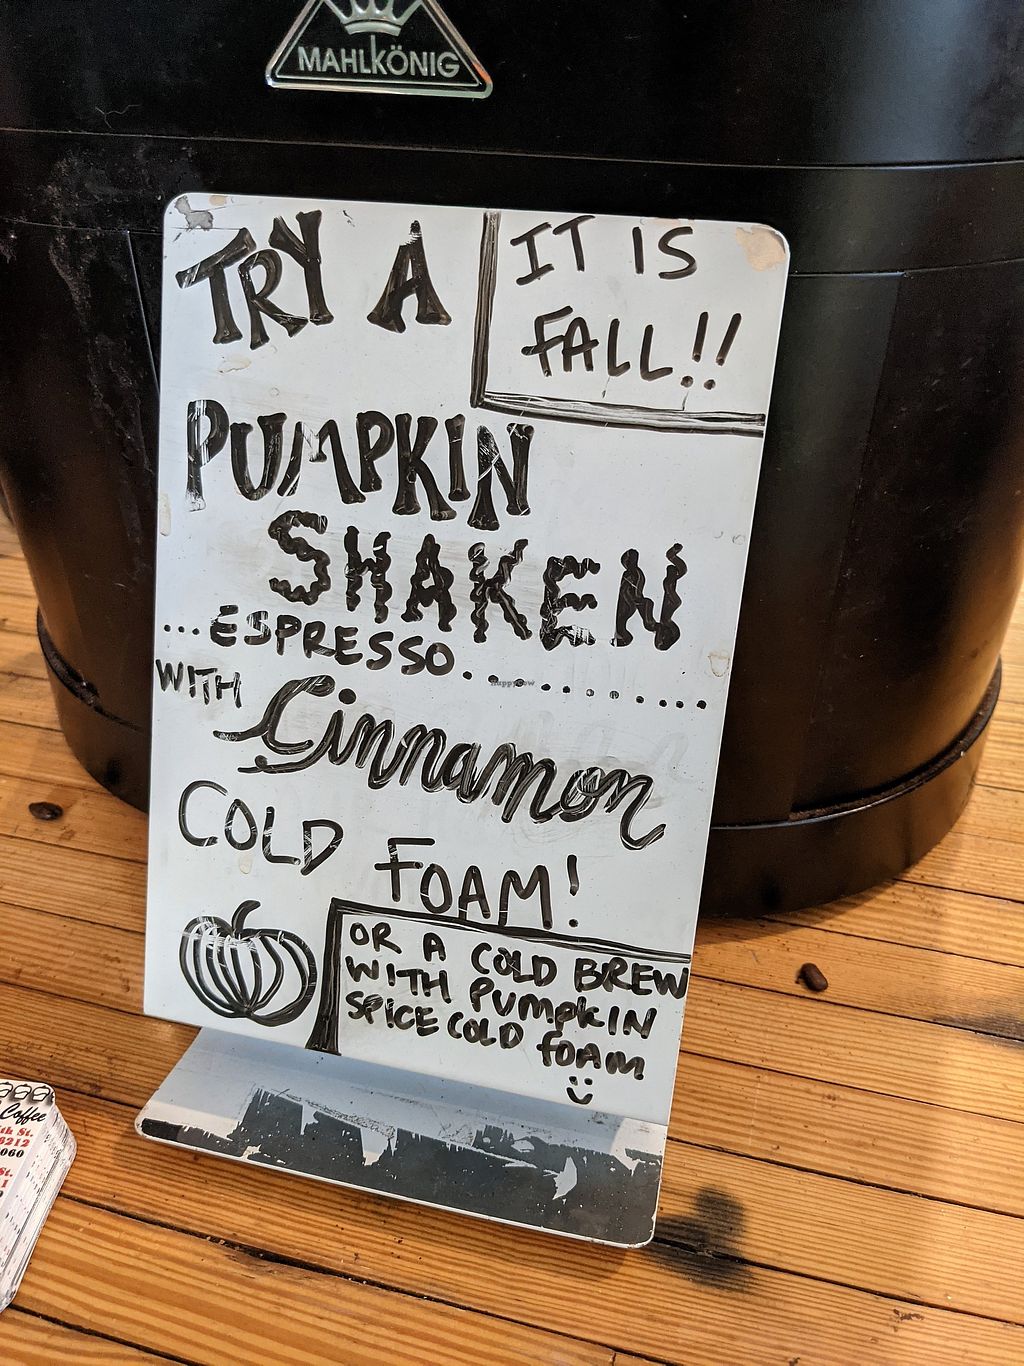 MAHLKÖNIG
TRY A
IT IS
FALL!!
PUMPKIN
SHAKEN
...ESPRESSO...........
WITH Cinnamon
COLD FOAM!
OR A COLD BREW
WITH PUMPKIN
SPICE COLD FOAM
Coffee
th St.
6212
060
St.
1